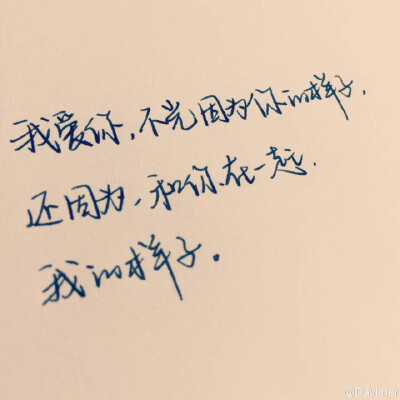 我爱你，不光因为你的样子，
还因为，和你在一起，
我的样子。